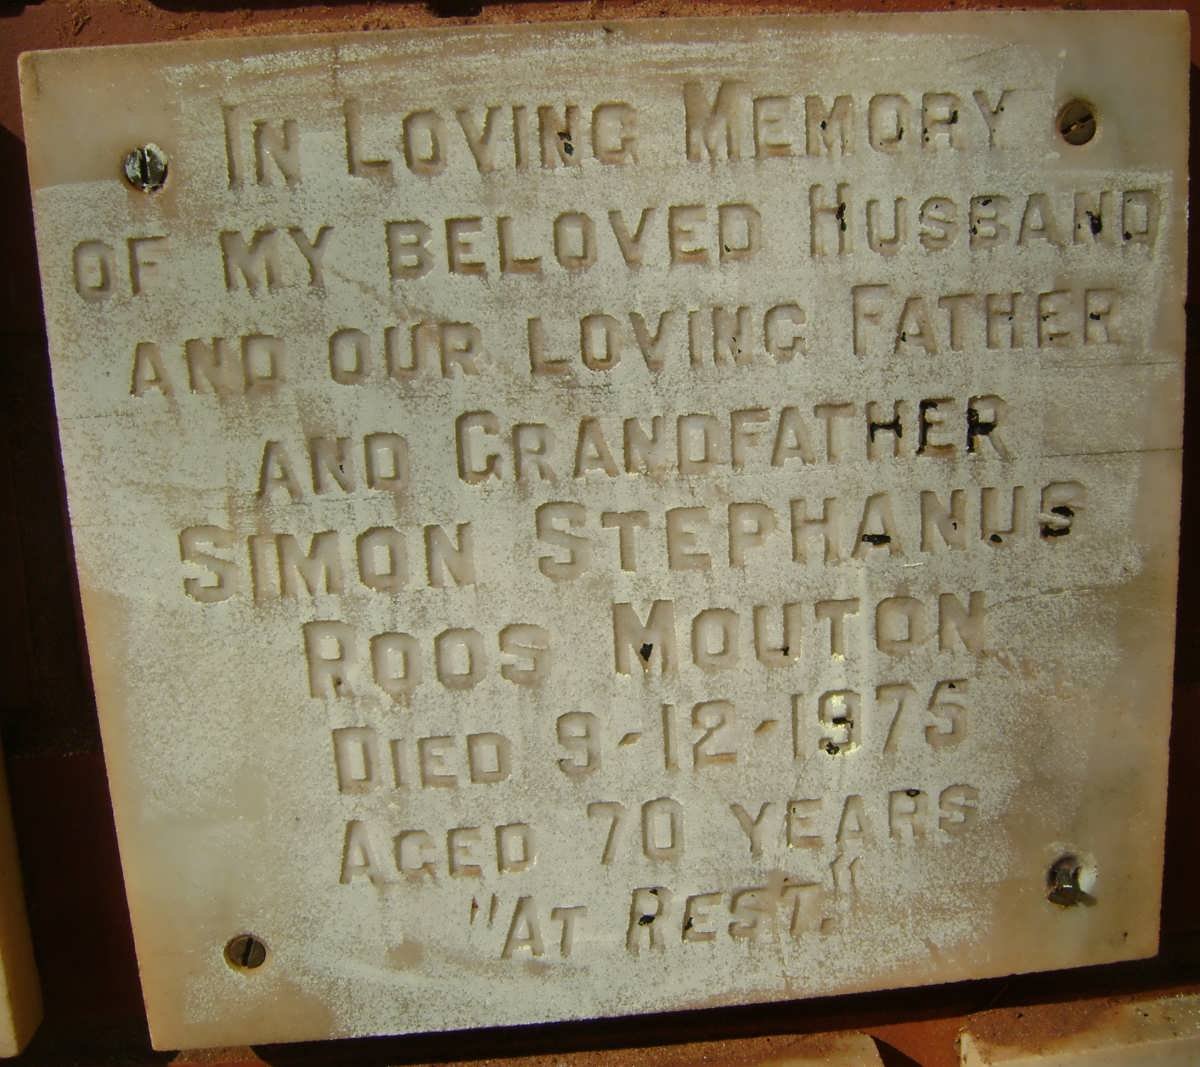 IN LOVING MEMORY
OF MY BELOVED HUSBAND
AND OUR LOVING FATHER
AND GRANDFATHER
SIMON STEPHANUS
ROOS MOUTON
DIED 9-12-1975
AGED 70 YEARS
"AT REST."